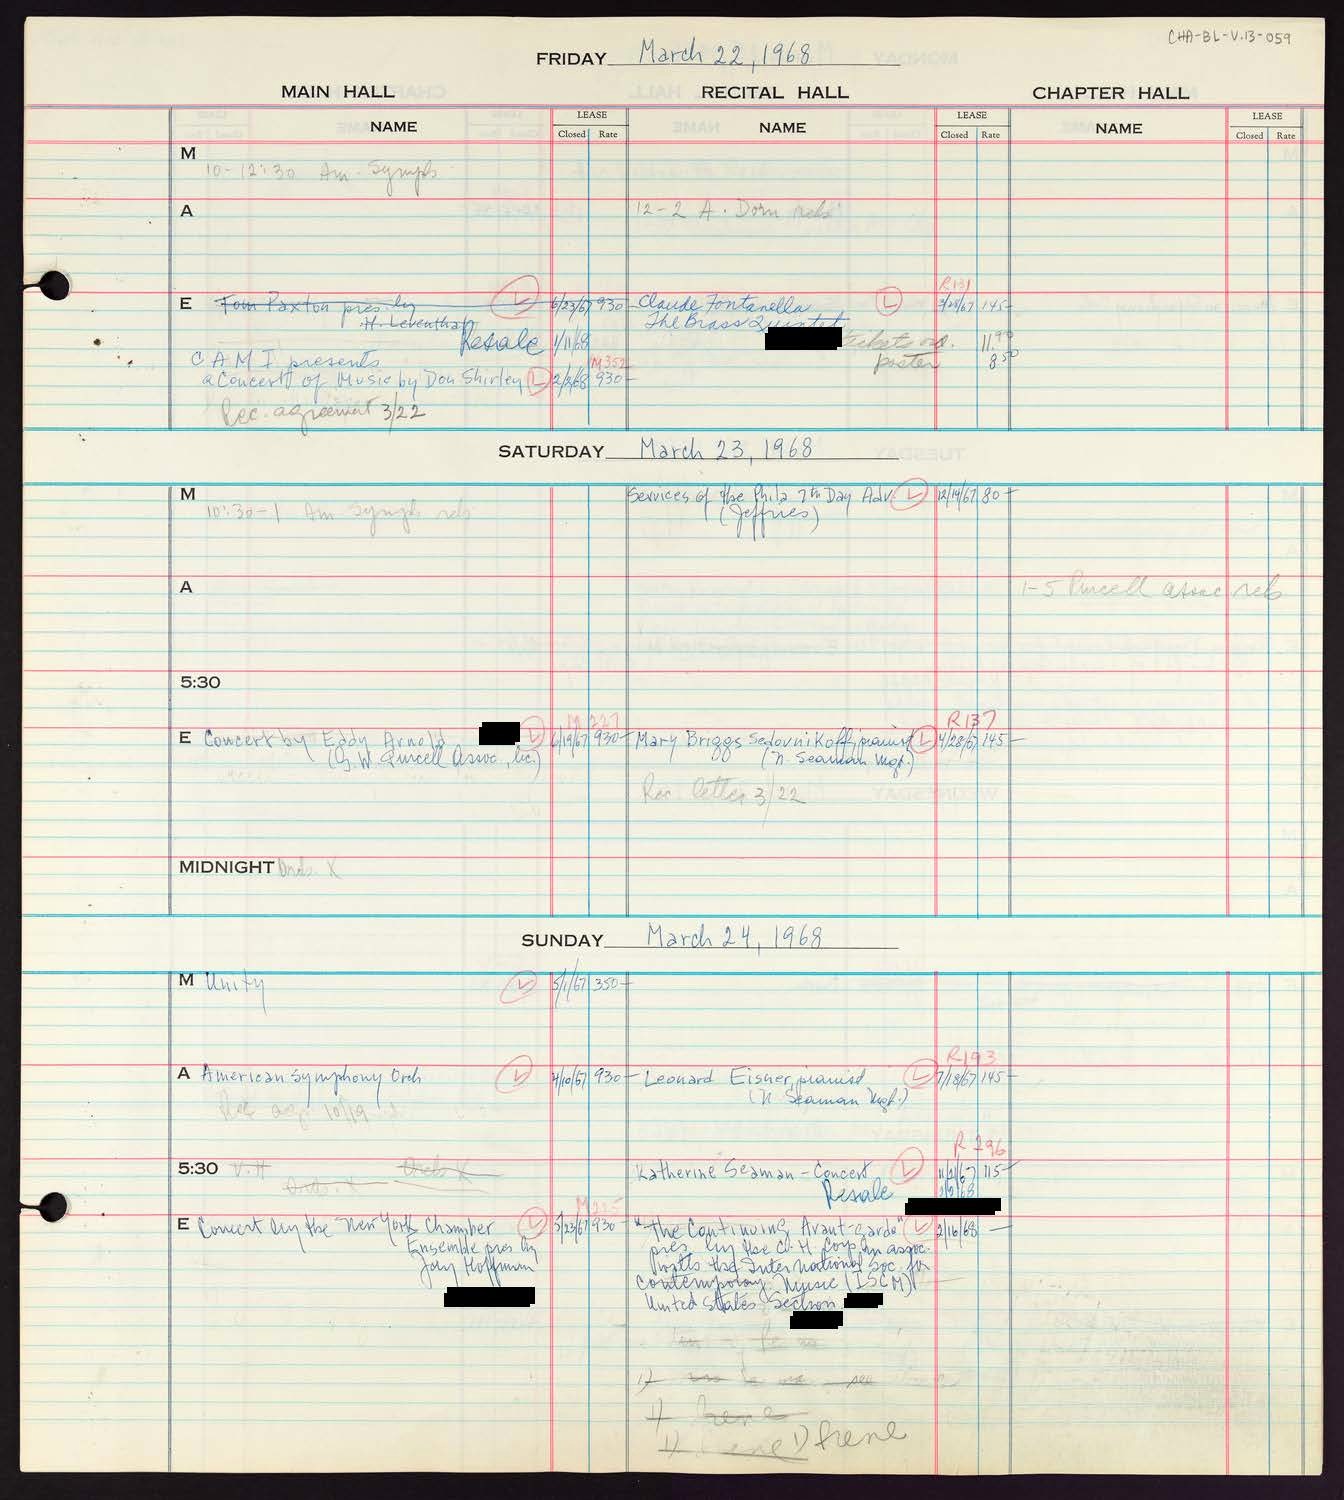 CHA-BL-V.13-059
FRIDAY March 22, 1968
MAIN HALL RECITAL HALL CHAPTER HALL
NAME LEASE Closed Rate NAME LEASE Closed Rate NAME LEASE Closed Rate
M
10-12:30 Am. Symph
A 12-2 A. Dorn reh
R131
E Tom Paxton pres. by L 6/23/67 930- Claude Fontanella L 145-
H. Leventhal The Brass Quintet
Resale 1/11/68 11.90
C A M I presents M352 poster 8.50
a Concert of Music by Don Shirley L 2/2/68 930-
Rec. agreement 3/22
SATURDAY March 23, 1968
M Services of the Phila 7th Day Adv. L 12/14/67 80-
10:30-1 Am Symph reh (Jeffries)
A 1-5 Purcell assoc reh
5:30
M 227 R137
E Concert by Eddy Arnold L 6/19/67 930- Mary Briggs Sedovnikoff, pianist L 4/28/67 145-
(G.W. Purcell Assoc., Inc.) (N. Seaman Mgt.)
Rec. letter 3/22
MIDNIGHT Orch. X
SUNDAY March 24, 1968
M Unity L 5/1/67 350-
R193
A American Symphony Orch L 4/10/67 930- Leonard Eisner, pianist L 7/18/67 145-
Rec agr 10/19 (N. Seaman Mgt.)
R 296
5:30 V.H Orch X Katherine Seaman - Concert L 11/21/67 115-
Orch. X Resale
M225
E Concert by the New York Chamber L 5/23/67 930- "The Continuing Avant-garde" L 2/16/68 -
Ensemble pres by pres. by the C.H. Corp in assoc.
Jay Hoffman with the International Soc. for
Contemporary Music (ISCM)
United States Section
1)
1) Irene
1) Irene 1) Irene